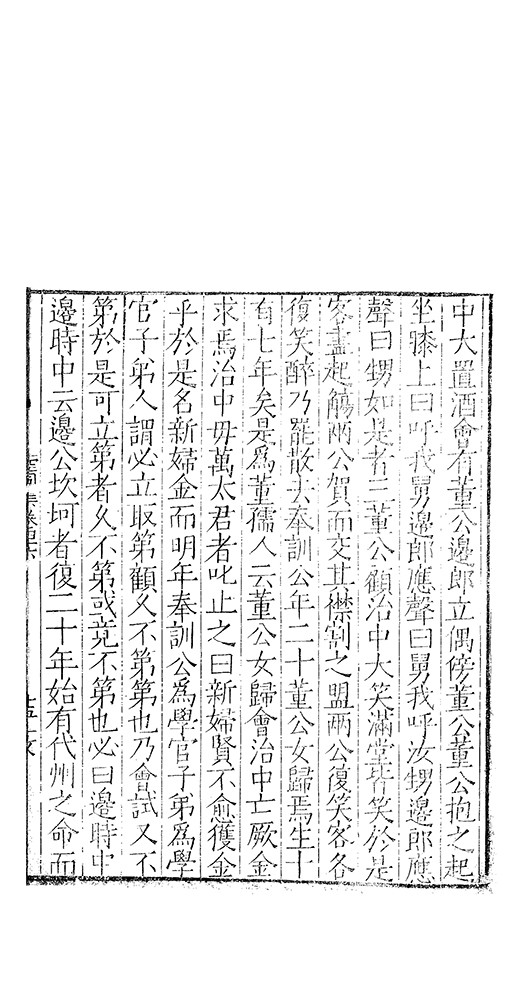 中大置酒會有董公邊郎立偶傍董公董公抱之起
坐膝上曰呼我舅邊郎應聲曰舅我呼汝甥邊郎應
聲曰甥如是者三董公顧治中大笑滿堂皆笑於是
客盡起觴兩公賀而交其襟割之盟兩公復笑客各
復笑醉乃罷散去奉訓公年二十董公女歸焉生十
有七年矣是為董孺人云董公女歸會治中亡厥金
求焉治中毋萬太君者叱止之曰新婦賢不愈獲金
乎於是名新婦金而明年奉訓公為學官子弟為學
官子弟人謂必立取第顧久不第第也乃會試又不
第於是可立第者久不第或竟不第也必曰邊時中
邊時中云邊公坎坷者復二十年始有代州之命而